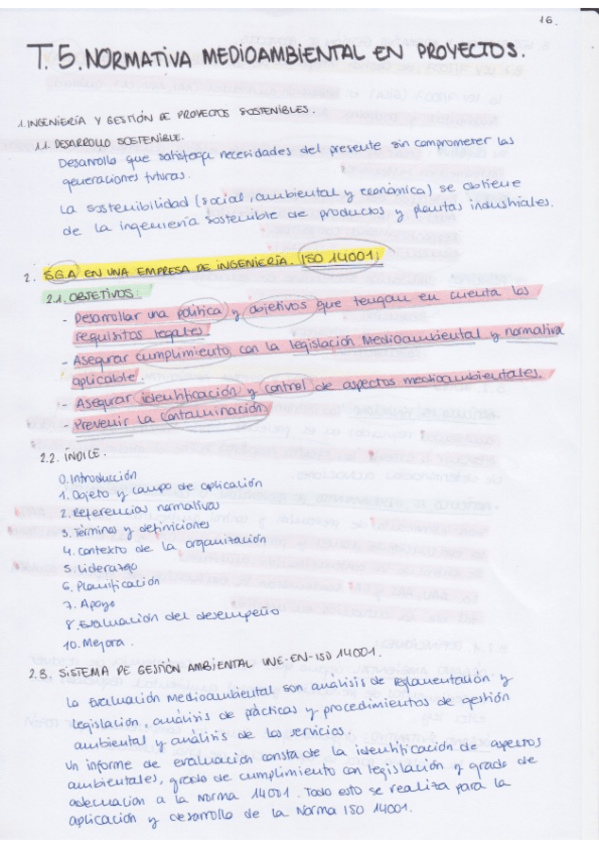 16.
T.5. NORMATIVA MEDIOAMBIENTAL EN PROYECTOS.
1. INGENIERÍA Y GESTIÓN DE PROYECTOS SOSTENIBLES.
1.1. DESARROLLO SOSTENIBLE.
Desarrollo que satisfaga necesidades del presente sin comprometer las
generaciones futuras.
La sostenibilidad (social, ambiental y económica) se obtiene
de la ingeniería sostenible de productos y plantas industriales.
2. S.G.A EN UNA EMPRESA DE INGENIERÍA. ISO 14001.
2.1. OBJETIVOS:
- Desarrollar una política y objetivos que tengan en cuenta los
requisitos legales.
- Asegurar cumplimiento con la legislación Medioambiental y normativa
aplicable.
- Asegurar identificación y control de aspectos medioambientales.
- Prevenir la contaminación
2.2. ÍNDICE.
0. Introducción
1. Objeto y campo de aplicación
2. Referencias normativas
3. Términos y definiciones
4. Contexto de la organización
5. Liderazgo
6. Planificación
7. Apoyo
8. Evaluación del desempeño
10. Mejora.
2.3. SISTEMA DE GESTIÓN AMBIENTAL UNE-EN-ISO 14001.
La Evaluación Medioambiental son análisis de reglamentación y
legislación, análisis de prácticas y procedimientos de gestión
ambiental y análisis de los servicios.
Un informe de evaluación consta de la identificación de aspectos
ambientales, grado de cumplimiento con legislación y grado de
adecuación a la Norma 14001. Todo esto se realiza para la
aplicación y desarrollo de la Norma ISO 14001.